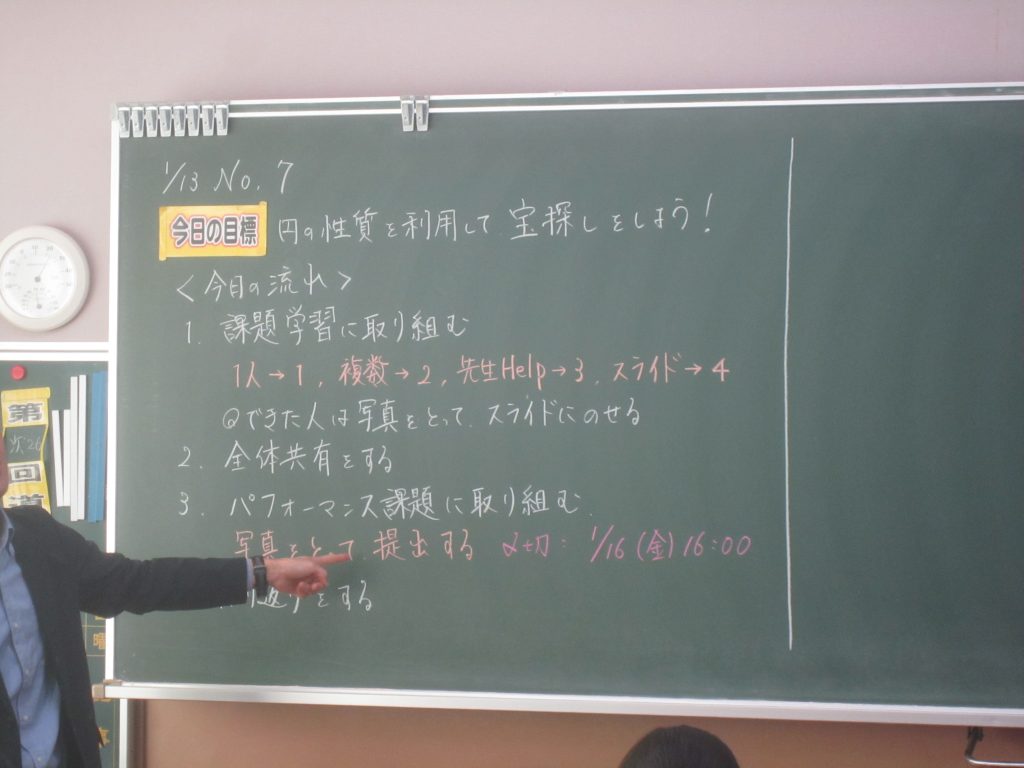 1/13 No. 7
今日の目標 円の性質を利用して 宝探しをしよう!
<今日の流れ>
1. 課題学習に取り組む
1人→1, 複数→2, 先生Help→3, スライド→4
◎できた人は写真をとって スライドにのせる
2. 全体共有をする
3. パフォーマンス課題に取り組む.
写真をとって 提出する 〆切: 1/16(金)16:00
り返りをする
第
回
曜